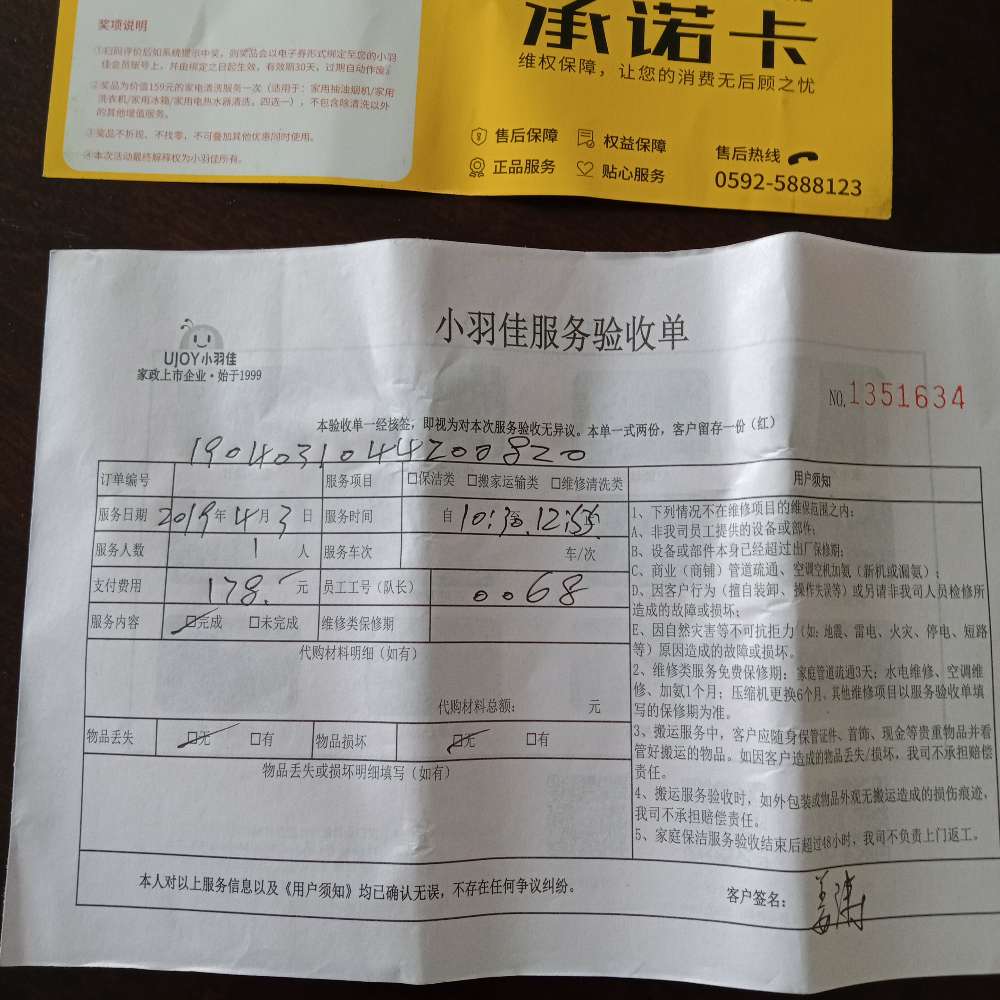 奖项说明
①扫码评价后如系统提示中奖，则奖品会以电子券形式绑定至您的小羽
佳会员账号上，并由绑定之日起生效，有效期30天，过期自动作废。
②奖品为价值159元的家电清洗服务一次（适用于：家用抽油烟机/家用
洗衣机/家用冰箱/家用电热水器清洗，四选一），不包含除清洗以外
的其他增值服务。
③奖品不折现、不找零，不可叠加其他优惠同时使用。
④本次活动最终解释权为小羽佳所有。
承诺卡
维权保障，让您的消费无后顾之忧
售后保障 权益保障
正品服务 贴心服务
售后热线
0592-5888123
UJOY小羽佳
家政上市企业·始于1999
小羽佳服务验收单
NO.1351634
本验收单一经核签，即视为对本次服务验收无异议。本单一式两份，客户留存一份（红）
19040310444200820
订单编号 服务项目 □保洁类 □搬家运输类 □维修清洗类
服务日期 2019年4月3日 服务时间 自10:30至12:55
服务人数 1人 服务车次 车/次
支付费用 178.元 员工工号（队长） 0068
服务内容 □完成 □未完成 维修类保修期
代购材料明细（如有）
代购材料总额： 元
物品丢失 □无 □有 物品损坏 □无 □有
物品丢失或损坏明细填写（如有）
用户须知
1、下列情况不在维修项目的维保范围之内：
A、非我司员工提供的设备或部件；
B、设备或部件本身已经超过出厂保修期；
C、商业（商铺）管道疏通、空调空机加氨（新机或漏氨）；
D、因客户行为（擅自装卸、操作失误等）或另请非我司人员检修所
造成的故障或损坏；
E、因自然灾害等不可抗拒力（如：地震、雷电、火灾、停电、短路
等）原因造成的故障或损坏。
2、维修类服务免费保修期：家庭管道疏通3天；水电维修、空调维
修、加氨1个月；压缩机更换6个月，其他维修项目以服务验收单填
写的保修期为准。
3、搬运服务中，客户应随身保管证件、首饰、现金等贵重物品并看
管好搬运的物品。如因客户造成的物品丢失/损坏，我司不承担赔偿
责任。
4、搬运服务验收时，如外包装或物品外观无搬运造成的损伤痕迹，
我司不承担赔偿责任。
5、家庭保洁服务验收结束后超过48小时，我司不负责上门返工。
本人对以上服务信息以及《用户须知》均已确认无误，不存在任何争议纠纷。
客户签名：姜涛